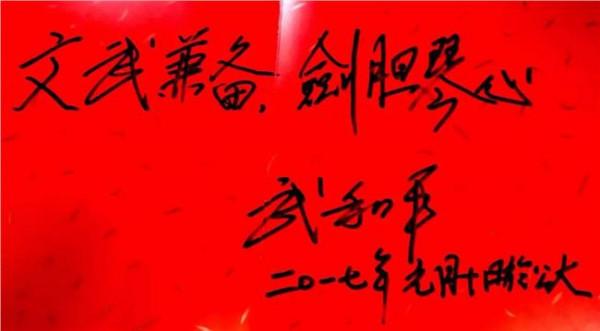 文武兼备，剑胆琴心
武和平
二〇一七年元月十日於公大